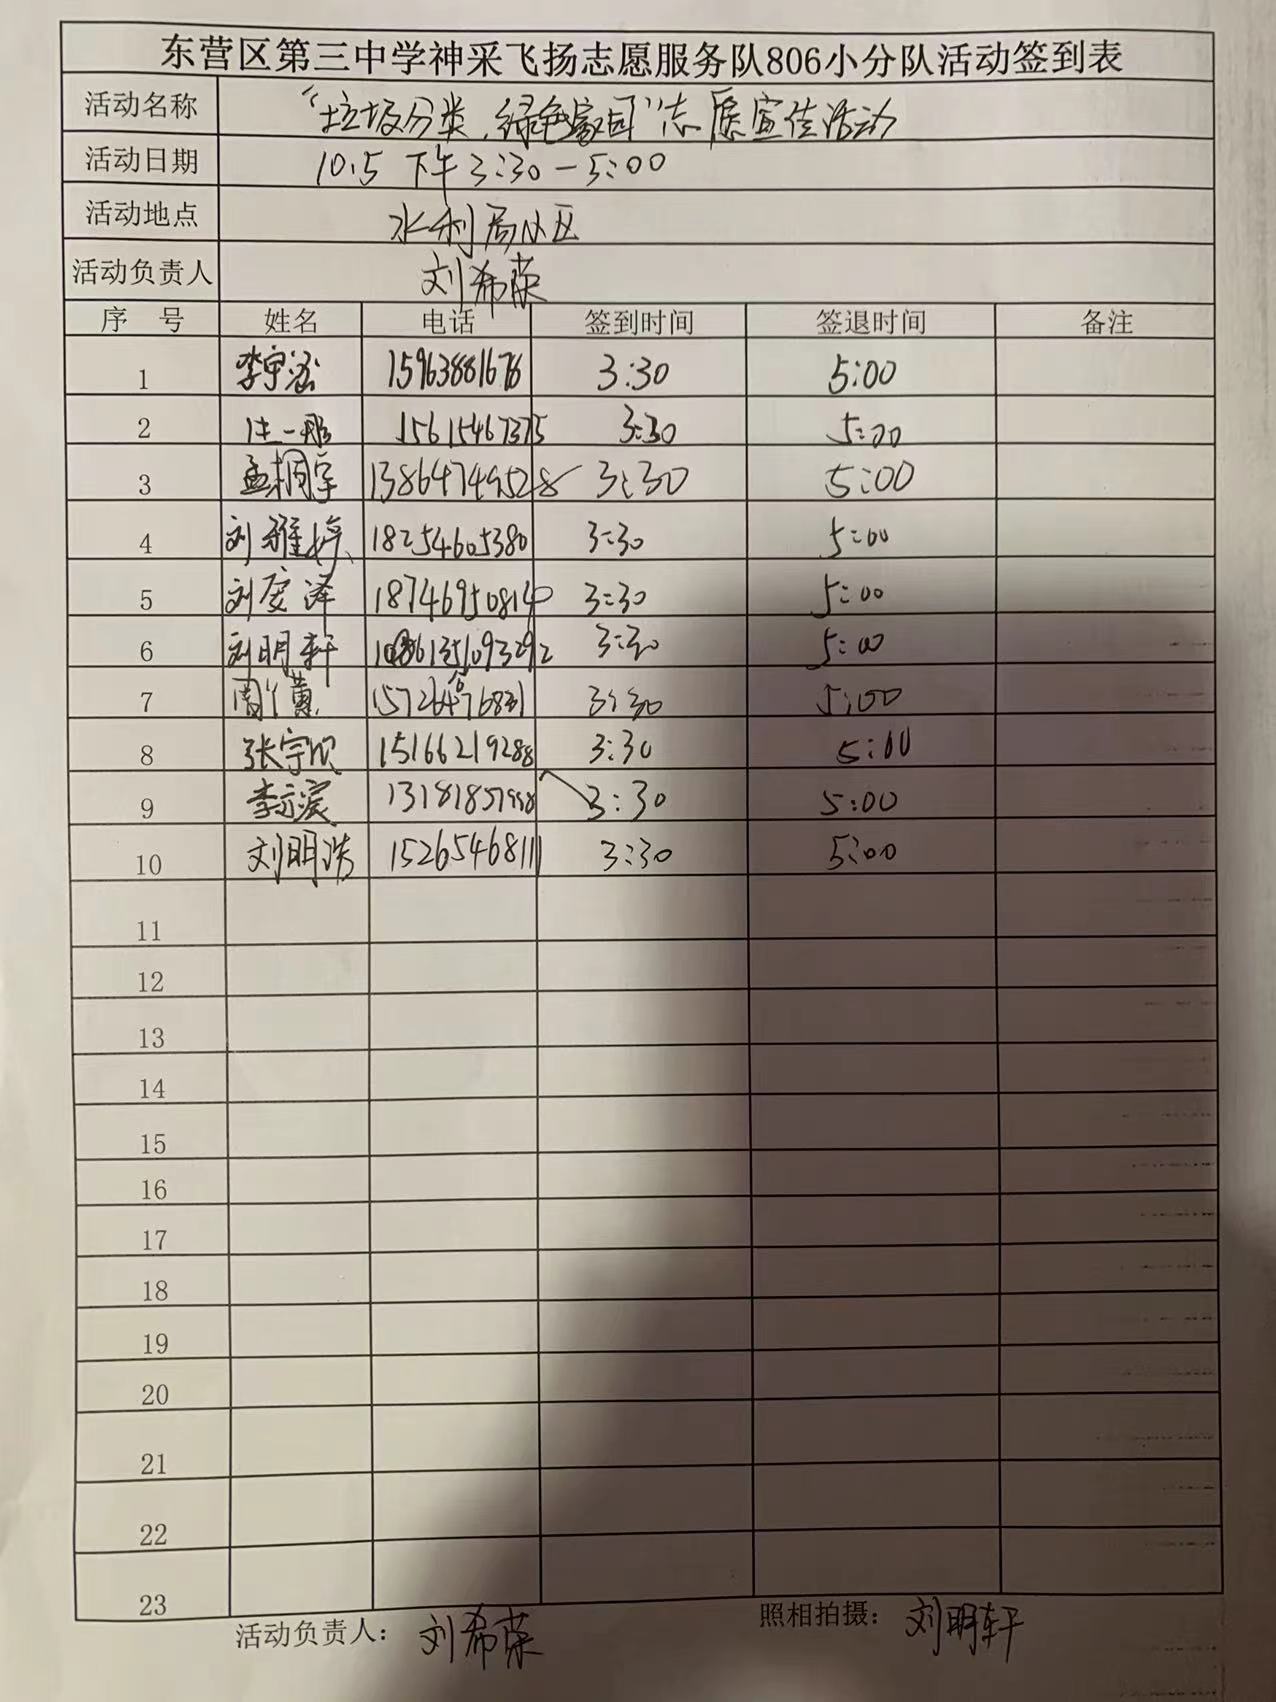 东营区第三中学神采飞扬志愿服务队806小分队活动签到表
活动名称 “垃圾分类,绿色家园”志愿宣传活动
活动日期 10.5 下午3:30-5:00
活动地点 水利局小区
活动负责人 刘希荣
序 号 姓名 电话 签到时间 签退时间 备注
1 15963881676 3:30 5:00
2 15615467375 3:30 5:00
3 孟桐宇 13864749528 3:30 5:00
4 刘雅婷 18254605380 3:30 5:00
5 18746950810 3:30 5:00
6 刘明轩 3:30 5:00
7 3:30 5:00
8 张宇欣 15166219288 3:30 5:00
9 3:30 5:00
10 刘明浩 15265468111 3:30 5:00
11
12
13
14
15
16
17
18
19
20
21
22
23
活动负责人: 刘希荣 照相拍摄: 刘明轩